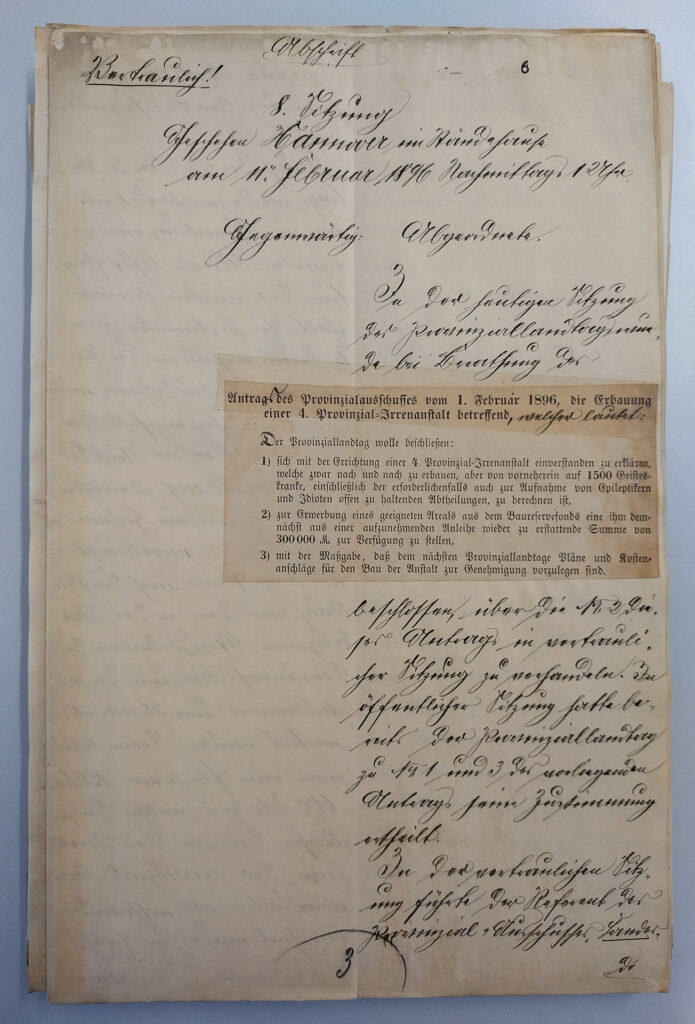 Abschrift
6
Vertraulich!
8. Sitzung
Geschehen Hannover im Ständehause
am 11. Februar 1896 Nachmittags 1 Uhr
Gegenwärtig: Abgeordnete.
In der heutigen Sitzung
des Provinziallandtags wur-
de bei Berathung des
Antrags des Provinzialausschusses vom 1. Februar 1896, die Erbauung
einer 4. Provinzial-Irrenanstalt betreffend, welcher lautet:
Der Provinziallandtag wolle beschließen:
1) sich mit der Errichtung einer 4. Provinzial-Irrenanstalt einverstanden zu erklären,
welche zwar nach und nach zu erbauen, aber von vorneherein auf 1500 Geistes-
kranke, einschließlich der erforderlichenfalls auch zur Aufnahme von Epileptikern
und Idioten offen zu haltenden Abtheilungen, zu berechnen ist,
2) zur Erwerbung eines geeigneten Areals aus dem Baureservefonds eine ihm dem-
nächst aus einer aufzunehmenden Anleihe wieder zu erstattende Summe von
300000 M. zur Verfügung zu stellen,
3) mit der Maßgabe, daß dem nächsten Provinziallandtage Pläne und Kosten-
anschläge für den Bau der Anstalt zur Genehmigung vorzulegen sind.
beschlossen, über die № 2 die-
ses Antrags in vertrauli-
cher Sitzung zu verhandeln. In
öffentlicher Sitzung hatte be-
reits der Provinziallandtag
zu № 1 und 3 des vorliegenden
Antrags seine Zustimmung
ertheilt.
In der vertraulichen Sitz-
ung führte der Referent des
Provinzial-Ausschusses, Landes-
di
3